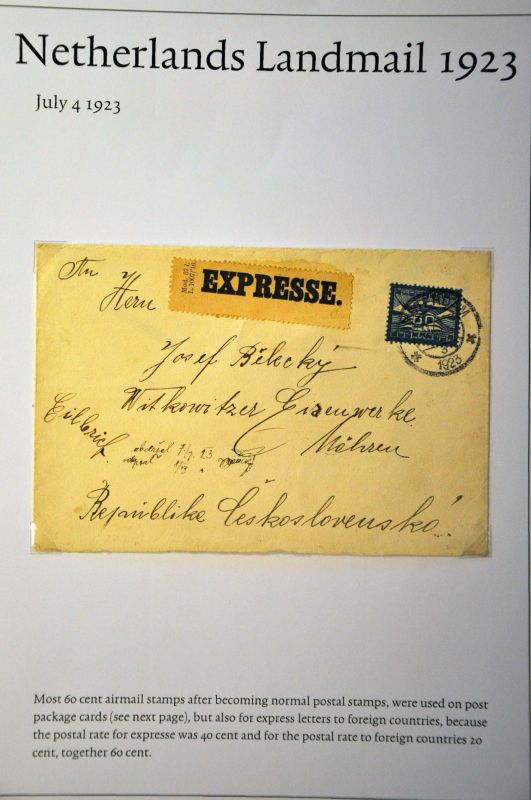 Netherlands Landmail 1923
July 4 1923
An
Herrn
EXPRESSE.
60
1923
Josef Bělecký
Witkowitzer Eisenwerke
Mähren
Eilbrief
obdržel 7/7. 23
Republike Československá.
Most 60 cent airmail stamps after becoming normal postal stamps, were used on post
package cards (see next page), but also for express letters to foreign countries, because
the postal rate for expresse was 40 cent and for the postal rate to foreign countries 20
cent, together 60 cent.